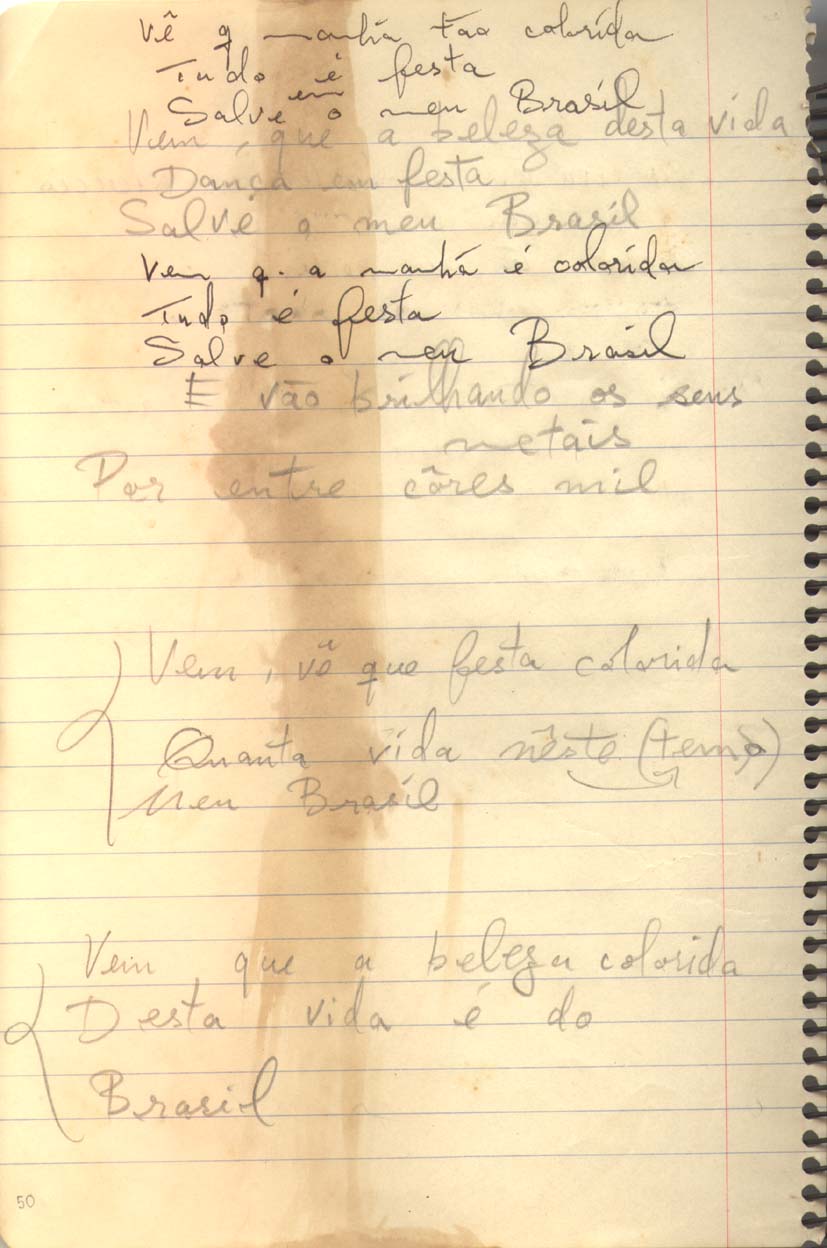 Vê q manhã tão colorida
Tudo é festa
em
Salve o meu Brasil
Vem, que a beleza desta vida
Dança em festa
Salve o meu Brasil
Vem q. a manhã é colorida
Tudo é festa
Salve o meu Brasil
E vão brilhando os seus
metais
Por entre côres mil
Vem, vê que festa colorida
Quanta vida nêste (tempo)
Meu Brasil
Vem que a beleza colorida
Desta vida é do
Brasil
50